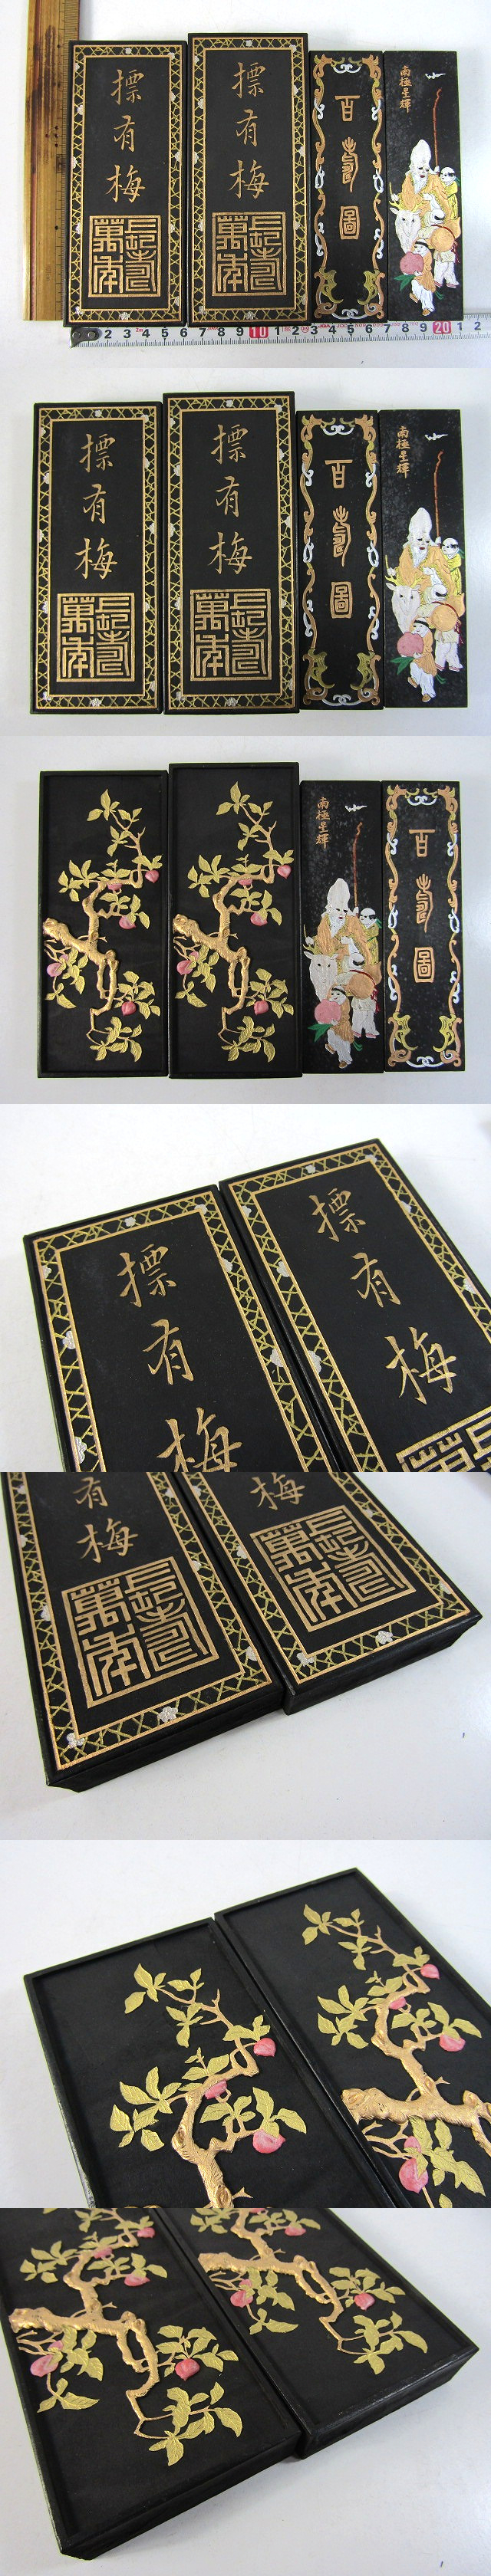 摽有梅
萬年
摽有梅
萬年
百壽圖
南極星輝
2 3 4 5 6 7 8 9 10 1 2 3 4 5 6 7 8 9 20 1 2
摽有梅
萬年
摽有梅
萬年
百壽圖
南極星輝
南極星輝
百壽圖
摽有梅
摽有梅
有梅
萬年
梅
萬年